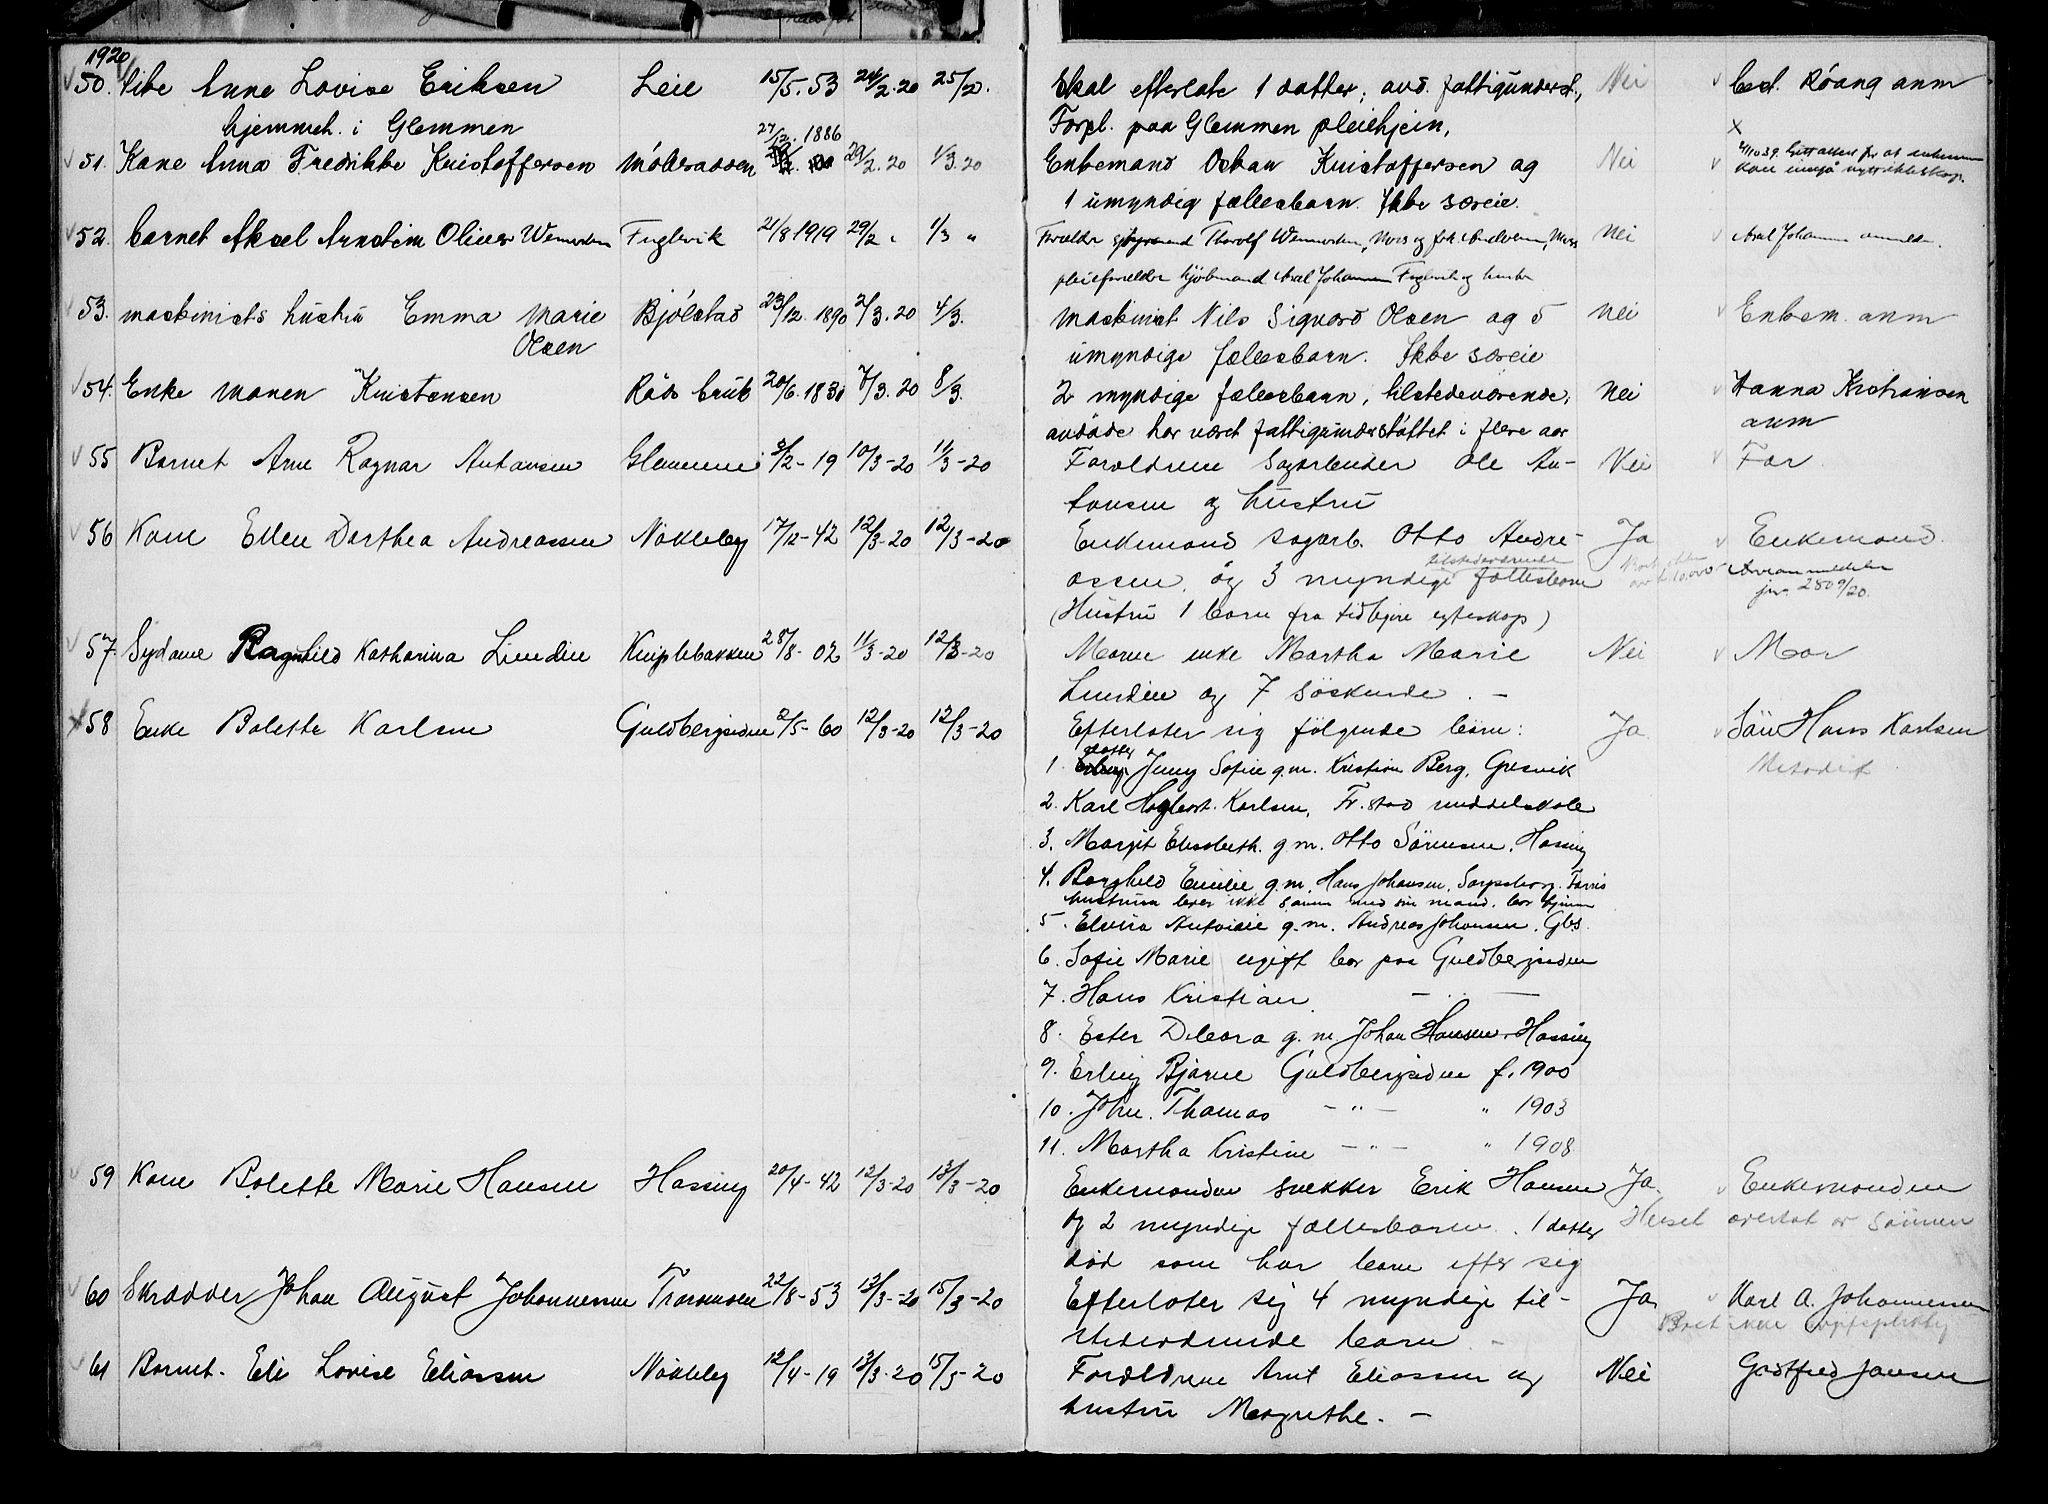 1920
50. Anne Lovise Eriksen Leie 15/5. 53 24/2.20 25/2. Skal efterlate 1 datter, avd. fattigunderst., Nei Best. Röang anm
hjemmeh. i Glemmen 27/12. 1886 Forpl. paa Glemmen pleiehjem, x
51. Kone Anna Fredrikke Kristoffersen 29/2.20 1/3.20 Enkemand Oskar Kristoffersen og Nei
1 umyndig fællesbarn. Ikke særeie.
52. barnet Aksel Arnstein Oliver Fuglevik 21/8 1919 29/2 " 1/3 " Thorolf Moss og Nei Axel Johansen
pleieforeldre Axel Johannesen Fuglevik og hustru
53. maskinists hustru Emma Marie Bjölstad 23/12. 1890 2/3.20 4/3. Maskinist Nils Sigvard Olsen og 5 Nei Enkem. anm
Olsen umyndige fællesbarn. Ikke særeie
54. Enke Maren Kristensen Råds bruk 20/6. 1831 7/3.20 8/3. 2 myndige fællesbarn, tilstedeværende, Nei Hanna Kristiansen
avdöde har været fattigunderstöttet i flere aar anm
55 Barnet Arne Ragnar Antonsen Glemmen 2/2-19 10/3-20 11/3-20 Foreldrene Sagarbeider Ole An- Nei Far
tonsen og hustru
56 Kone Ellen Dorthea Andreassen Nökleby 17/12-42 12/3-20 12/3-20 Enkemand sagarb. Otto Andre- Ja Enkemand.
tilstedeværende
assen, og 3 myndige fællesbarn
jnr. 2809/20.
(Hustru 1 barn fra tidligere egteskap)
57. Sydame Ragnhild Katharina Lunden Kniplebakken 28/8-02 11/3-20 12/3-20 Moren enke Martha Marie Nei Mor
Lunden og 7 söskende. —
58 Enke Bolette Karlsen Guldbergsiden 2/5-60 12/3-20 12/3-20 Efterlater sig følgende barn: Ja Sön Hans Karlsen
datter
1. Jenny Sofie g.m. Kristian Berg, Gresvik Metodist
2. Karl Karlsen, Fr.stad middelskole
3. Margit Elisabeth. g.m. Otto Sörensen, Hassing
4. Borghild Emilie g.m. Hans Johansen, Sarpsborg.
hustruen lever ikke sammen med sin mand, bor hjemme
5. Elvira Antonie g.m. Andreas Johansen, Gbs.
6. Sofie Marie ugift bor paa Guldbergsiden
7. Hans Kristian — " —
8. Ester Debora g.m Johan Hansen, Hassing
9. Erling Bjarne Guldbergsiden f. 1900
10. John. Thomas — " — " 1903
11. Martha Kristine — " — " 1908
59 Kone Bolette Marie Hansen Hassing 20/4-42 12/3-20 13/3-20 Enkemanden snekker Erik Hansen Ja. Enkemanden
og 2 myndige fællesbarn. 1 datter Huset overtat av sönnen
död som har barn efter sig
60 Skrædder Johan August Johannessen Traraveien 22/8-53 13/3-20 15/3-20 Efterlater sig 4 myndige til- Ja Karl A. Johannessen
stedeværende barn — Boet ikke
61 Barnet. Eli Lovise Eliassen Nökleby 12/4-19 13/3-20 15/3-20 Foreldrene Arnt Eliassen og Nei Gottfred Jansen
hustru Margrethe. —